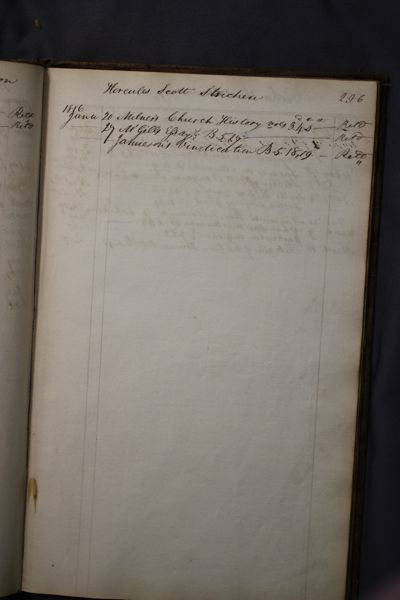 Hercules Scott Strichen 296
1816
Janu 20 Milner's Church History vols 3 4 5 Retd
29 McGill's B. 5. 19 Retd
1 Jamieson's Vindication B 5. 18, 19 Retd
"
on
Retd
Retd